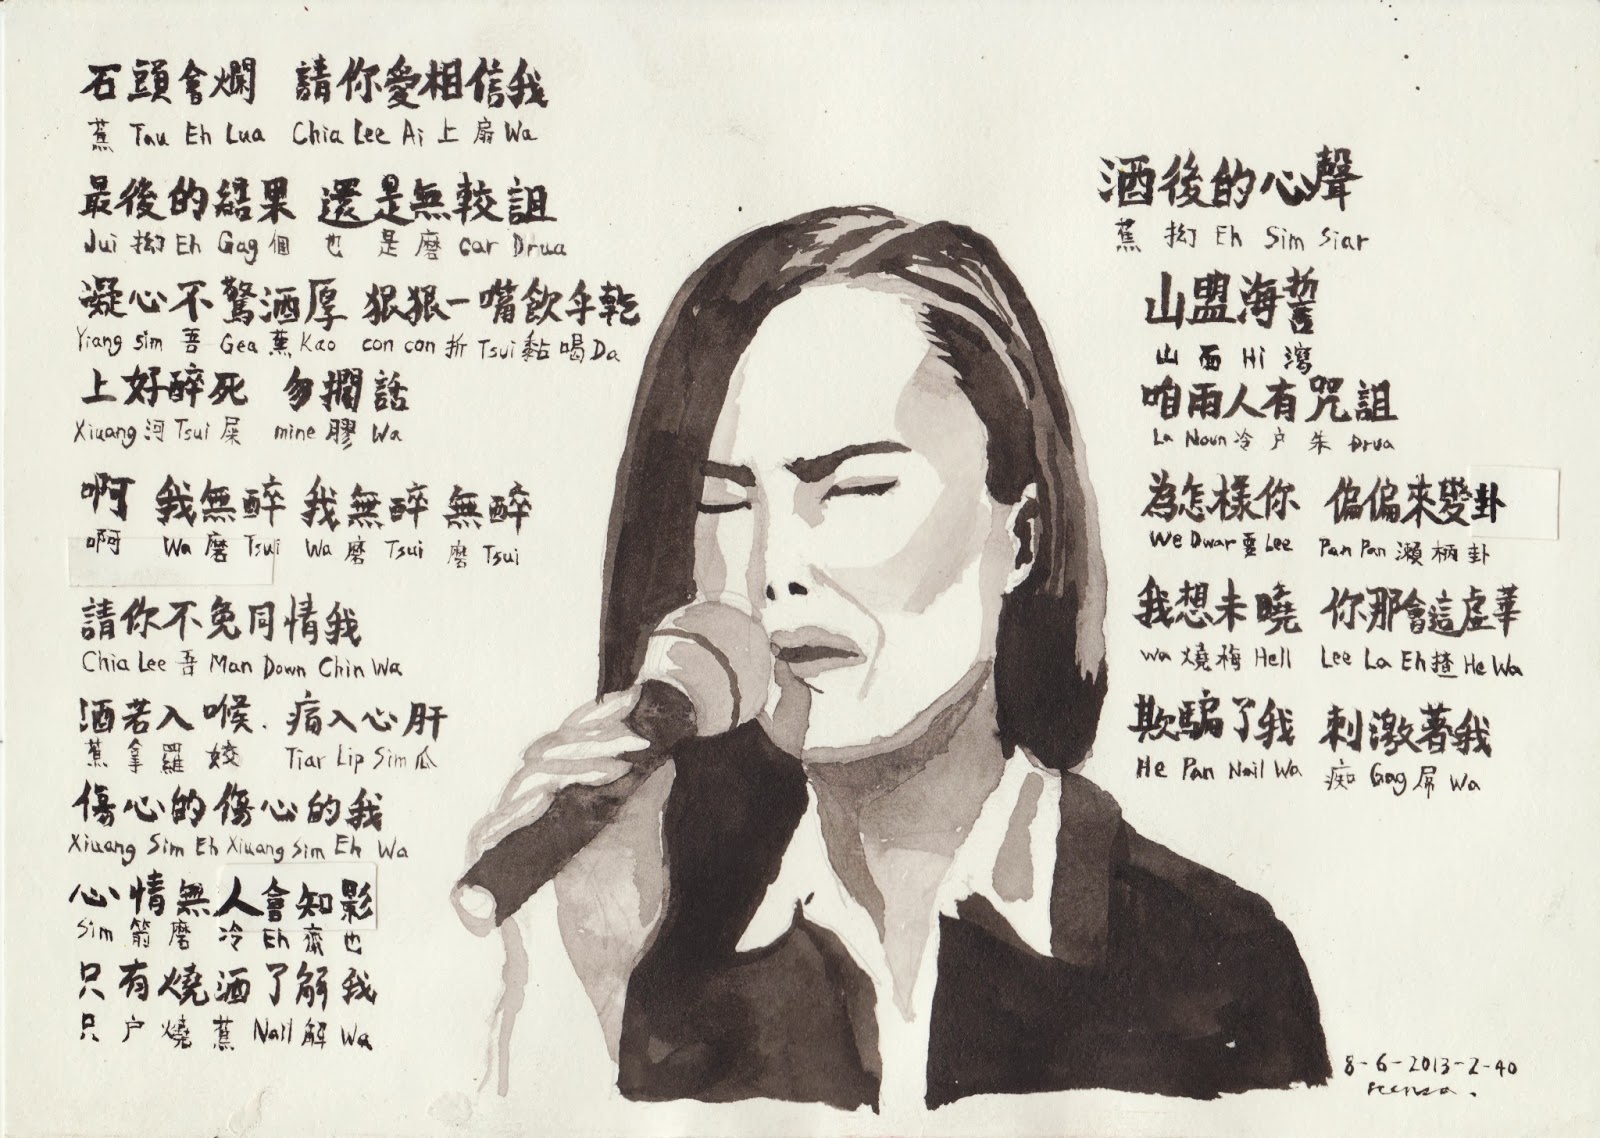 酒後的心聲
蕉 拗 Eh Sim Siar
山盟海誓
山 面 Hi 瀉
咱兩人有咒詛
La Noun 冷 户 朱 Drua
為怎樣你 偏偏來變卦
We Dwar 耍 Lee Pan Pan 瀨 柄 卦
我想未曉 你那會這虛華
Wa 燒 梅 Hell Lee La Eh 揸 He Wa
欺騙了我 刺激著我
He Pan Nail Wa 痴 Gag 屌 Wa
石頭會爛 請你愛相信我
蕉 Tau Eh Lua Chia Lee Ai 上 扇 Wa
最後的結果 還是無較詛
Jui 拗 Eh Gag 個 也 是 磨 Car Drua
凝心不驚酒厚 狠狠一嘴飲乎乾
Yiang Sim 吾 Gea 蕉 Kao con con 折 Tsui 黏 喝 Da
上好醉死 勿擱話
Xiuang 河 Tsui 屎 mine 膠 Wa
啊 我無醉 我無醉 無醉
啊 Wa 磨 Tsui Wa 磨 Tsui 磨 Tsui
請你不免同情我
Chia Lee 吾 Man Down Chin Wa
酒若入喉. 痛入心肝
蕉 拿 羅 姣 Tiar Lip Sim 瓜
傷心的傷心的我
Xiuang Sim Eh Xiuang Sim Eh Wa
心情無人會知影
Sim 箭 磨 冷 Eh 齋 也
只有燒酒了解我
只 户 燒 蕉 Nail 解 Wa
8-6-2013-2-40